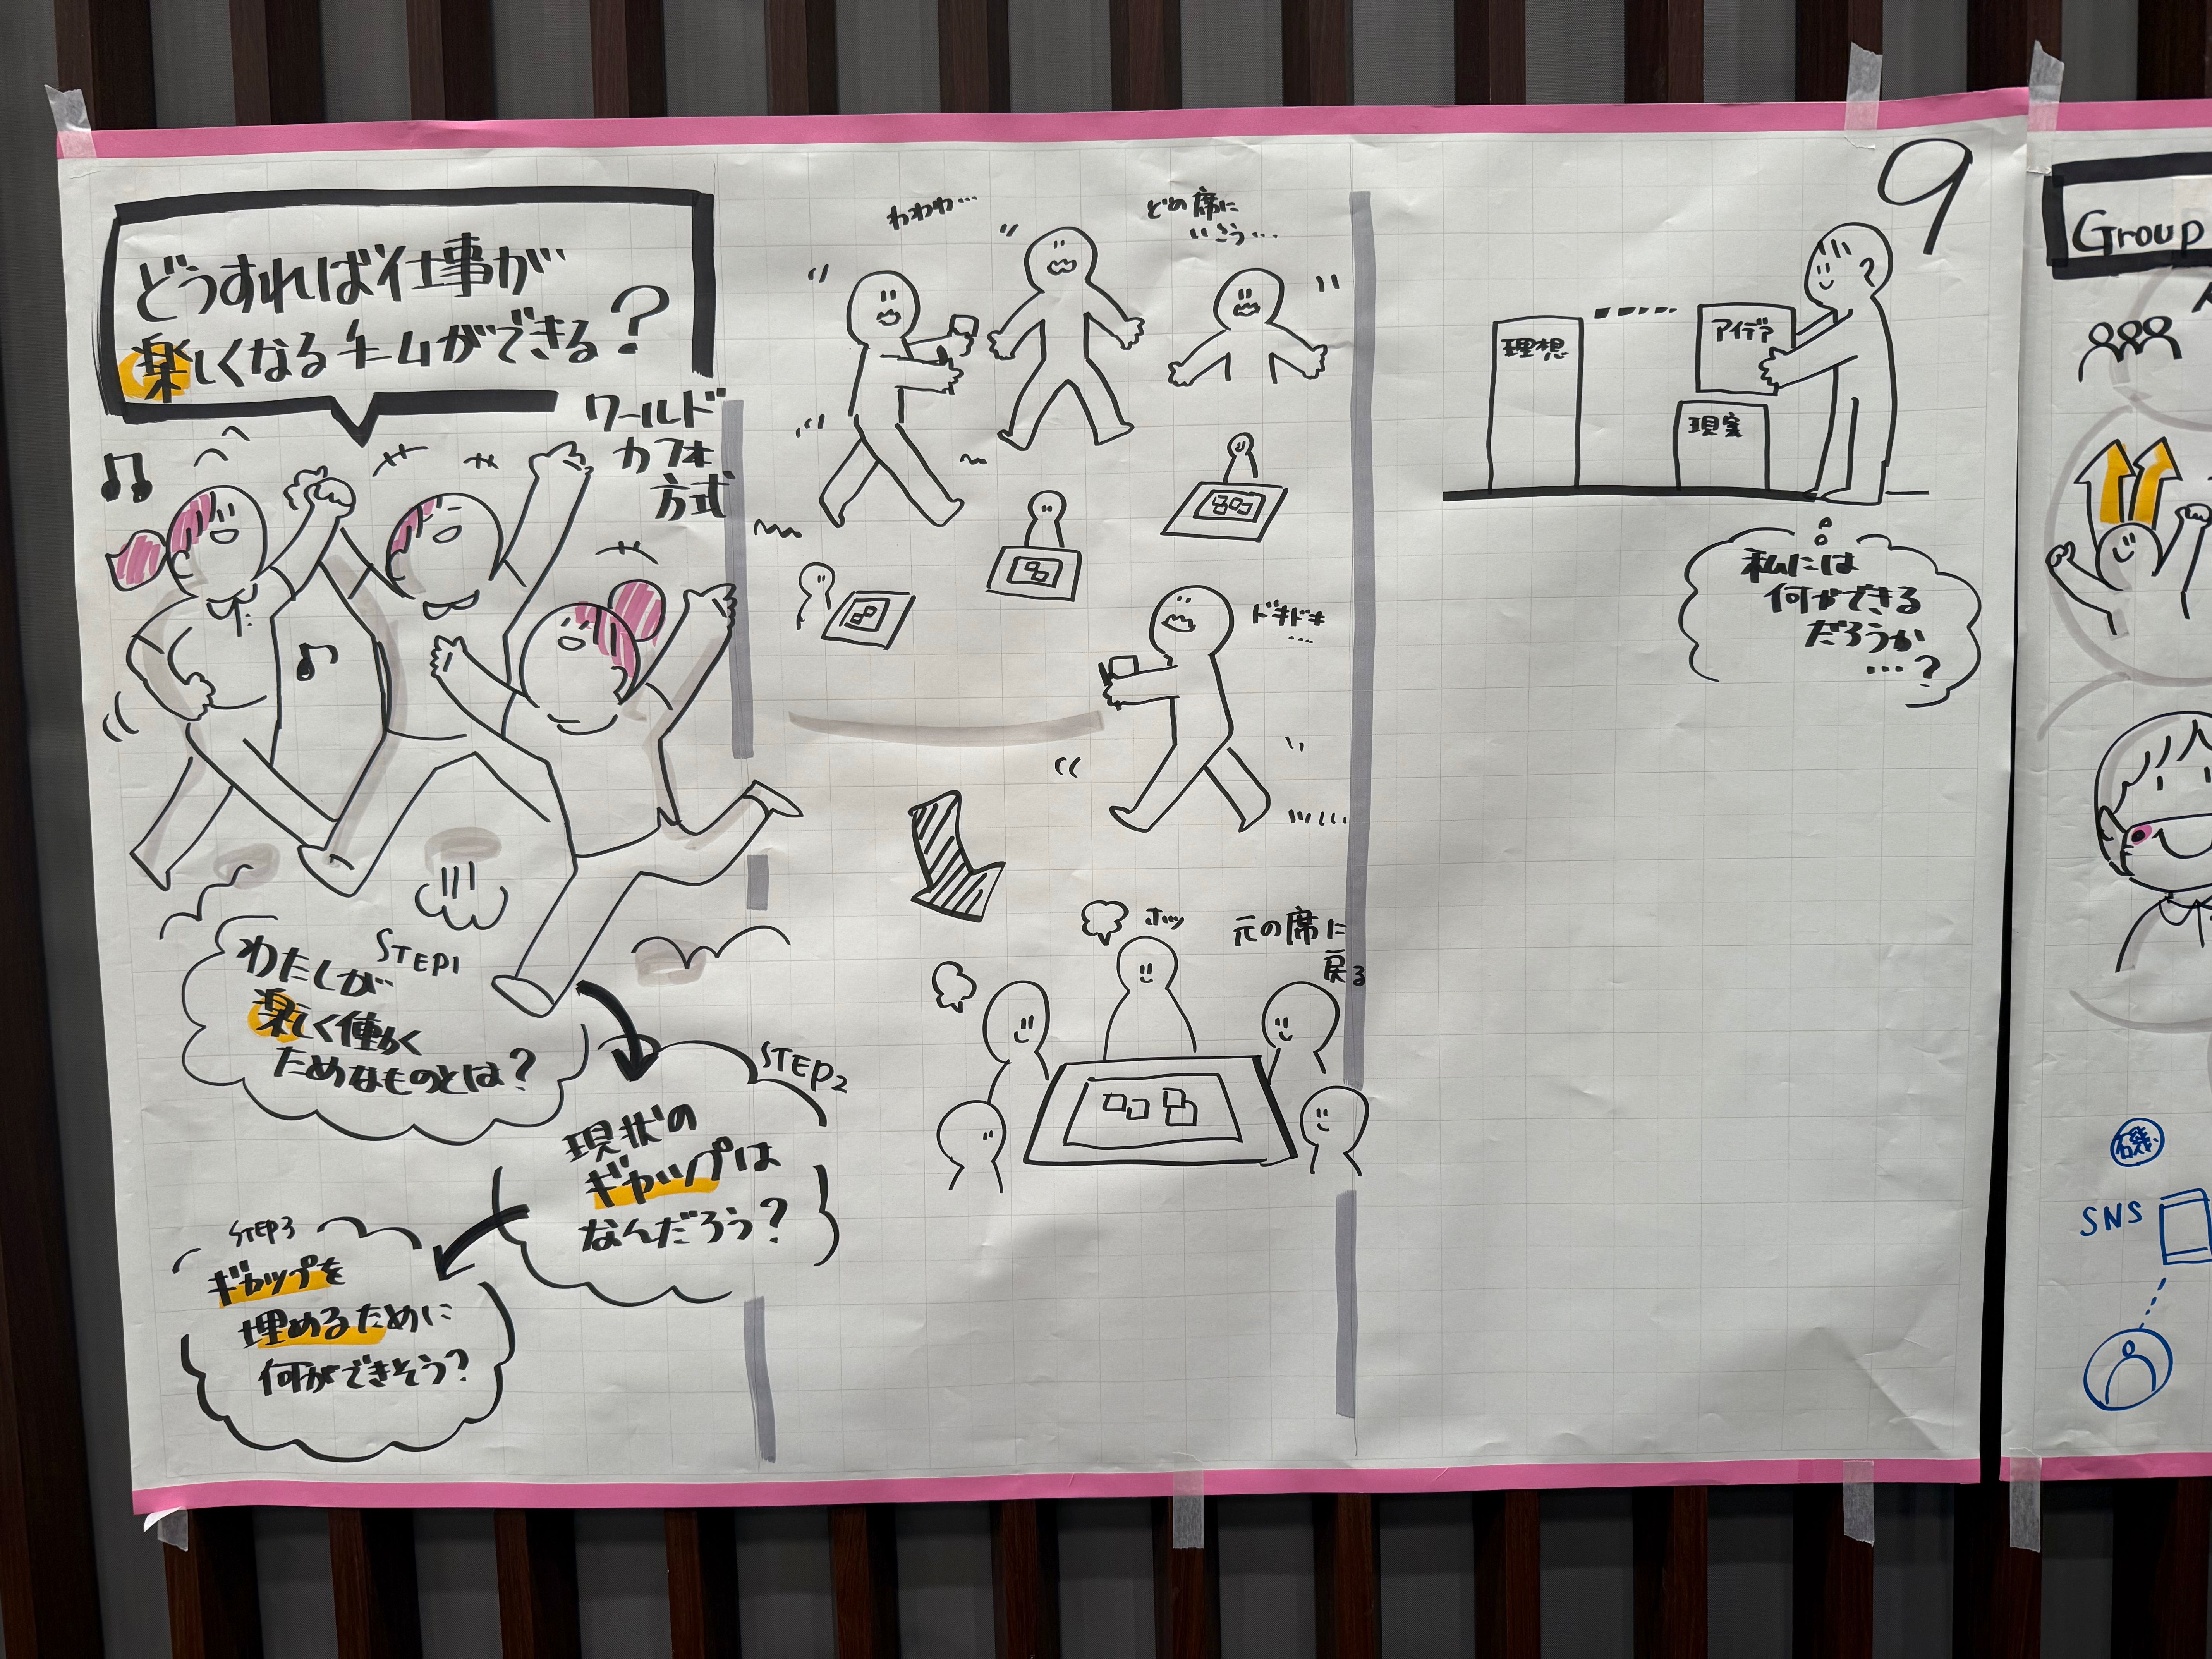 どうすれば仕事が
楽しくなるチームができる?
ワールド
カフェ
方式
STEP1
わたしが
楽しく働く
ためなものとは?
STEP2
現状の
ギャップは
なんだろう?
STEP3
ギャップを
埋めるために
何ができそう?
わわわ…
どの席に
いこう…
ドキドキ
…
ホッ
元の席に
戻る
9
理想
アイデア
現実
私には
何ができる
だろうか
…?
Group
磯
SNS